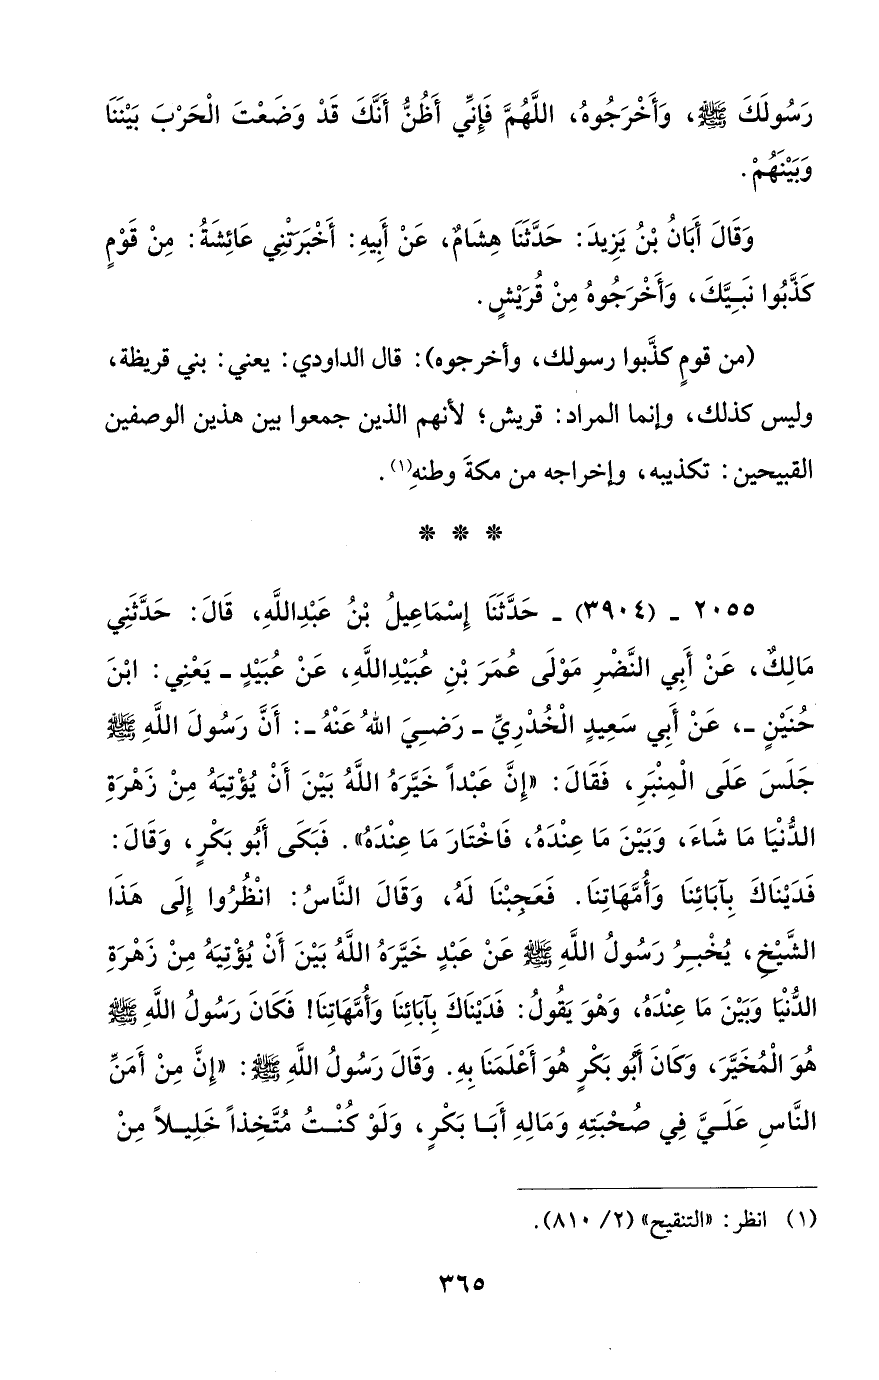 رَسُولَكَ ﷺ، وَأَخْرَجُوهُ، اللَّهُمَّ فَإِنِّي أَظُنُّ أَنَّكَ قَدْ وَضَعْتَ الْحَرْبَ بَيْنَنَا
وَبَيْنَهُمْ.
وَقَالَ أَبَانُ بْنُ يَزِيدَ: حَدَّثَنَا هِشَامٌ، عَنْ أَبِيهِ: أَخْبَرَتْنِي عَائِشَةُ: مِنْ قَوْمٍ
كَذَّبُوا نَبِيَّكَ، وَأَخْرَجُوهُ مِنْ قُرَيْشٍ.
(من قومٍ كذَّبوا رسولك، وأخرجوه): قال الداودي: يعني: بني قريظة،
وليس كذلك، وإنما المراد: قريش؛ لأنهم الذين جمعوا بين هذين الوصفين
القبيحين: تكذيبه، وإخراجه من مكةَ وطنهِ(١).
* * *
٢٠٥٥ - (٣٩٠٤) - حَدَّثَنَا إِسْمَاعِيلُ بْنُ عَبْدِاللَّهِ، قَالَ: حَدَّثَنِي
مَالِكٌ، عَنْ أَبِي النَّضْرِ مَوْلَى عُمَرَ بْنِ عُبَيْدِاللَّهِ، عَنْ عُبَيْدٍ - يَعْنِي: ابْنَ
حُنَيْنٍ -، عَنْ أَبِي سَعِيدٍ الْخُدْرِيِّ - رَضِيَ اللهُ عَنْهُ -: أَنَّ رَسُولَ اللَّهِ ﷺ
جَلَسَ عَلَى الْمِنْبَرِ، فَقَالَ: «إِنَّ عَبْداً خَيَّرَهُ اللَّهُ بَيْنَ أَنْ يُؤْتِيَهُ مِنْ زَهْرَةِ
الدُّنْيَا مَا شَاءَ، وَبَيْنَ مَا عِنْدَهُ، فَاخْتَارَ مَا عِنْدَهُ». فَبَكَى أَبُو بَكْرٍ، وَقَالَ:
فَدَيْنَاكَ بِآبَائِنَا وَأُمَّهَاتِنَا. فَعَجِبْنَا لَهُ، وَقَالَ النَّاسُ: انْظُرُوا إِلَى هَذَا
الشَّيْخِ، يُخْبِرُ رَسُولُ اللَّهِ ﷺ عَنْ عَبْدٍ خَيَّرَهُ اللَّهُ بَيْنَ أَنْ يُؤْتِيَهُ مِنْ زَهْرَةِ
الدُّنْيَا وَبَيْنَ مَا عِنْدَهُ، وَهْوَ يَقُولُ: فَدَيْنَاكَ بِآبَائِنَا وَأُمَّهَاتِنَا! فَكَانَ رَسُولُ اللَّهِ ﷺ
هُوَ الْمُخَيَّرَ، وَكَانَ أَبُو بَكْرٍ هُوَ أَعْلَمَنَا بِهِ. وَقَالَ رَسُولُ اللَّهِ ﷺ: «إِنَّ مِنْ أَمَنِّ
النَّاسِ عَلَيَّ فِي صُحْبَتِهِ وَمَالِهِ أَبَا بَكْرٍ، وَلَوْ كُنْتُ مُتَّخِذاً خَلِيلاً مِنْ
(١) انظر: «التنقيح» (٢/ ٨١٠).
٣٦٥